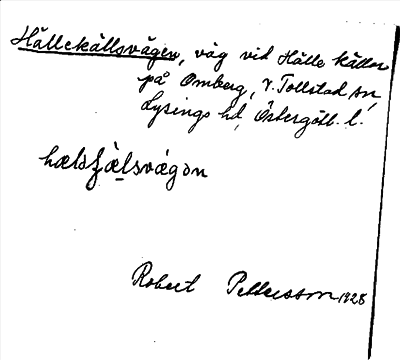 Hällekällsvägen, väg vid Hälle källa
på Omberg, V. Tollstad sn,
Lysings hd, Östergötl. l.
Robert Pettersson 1928